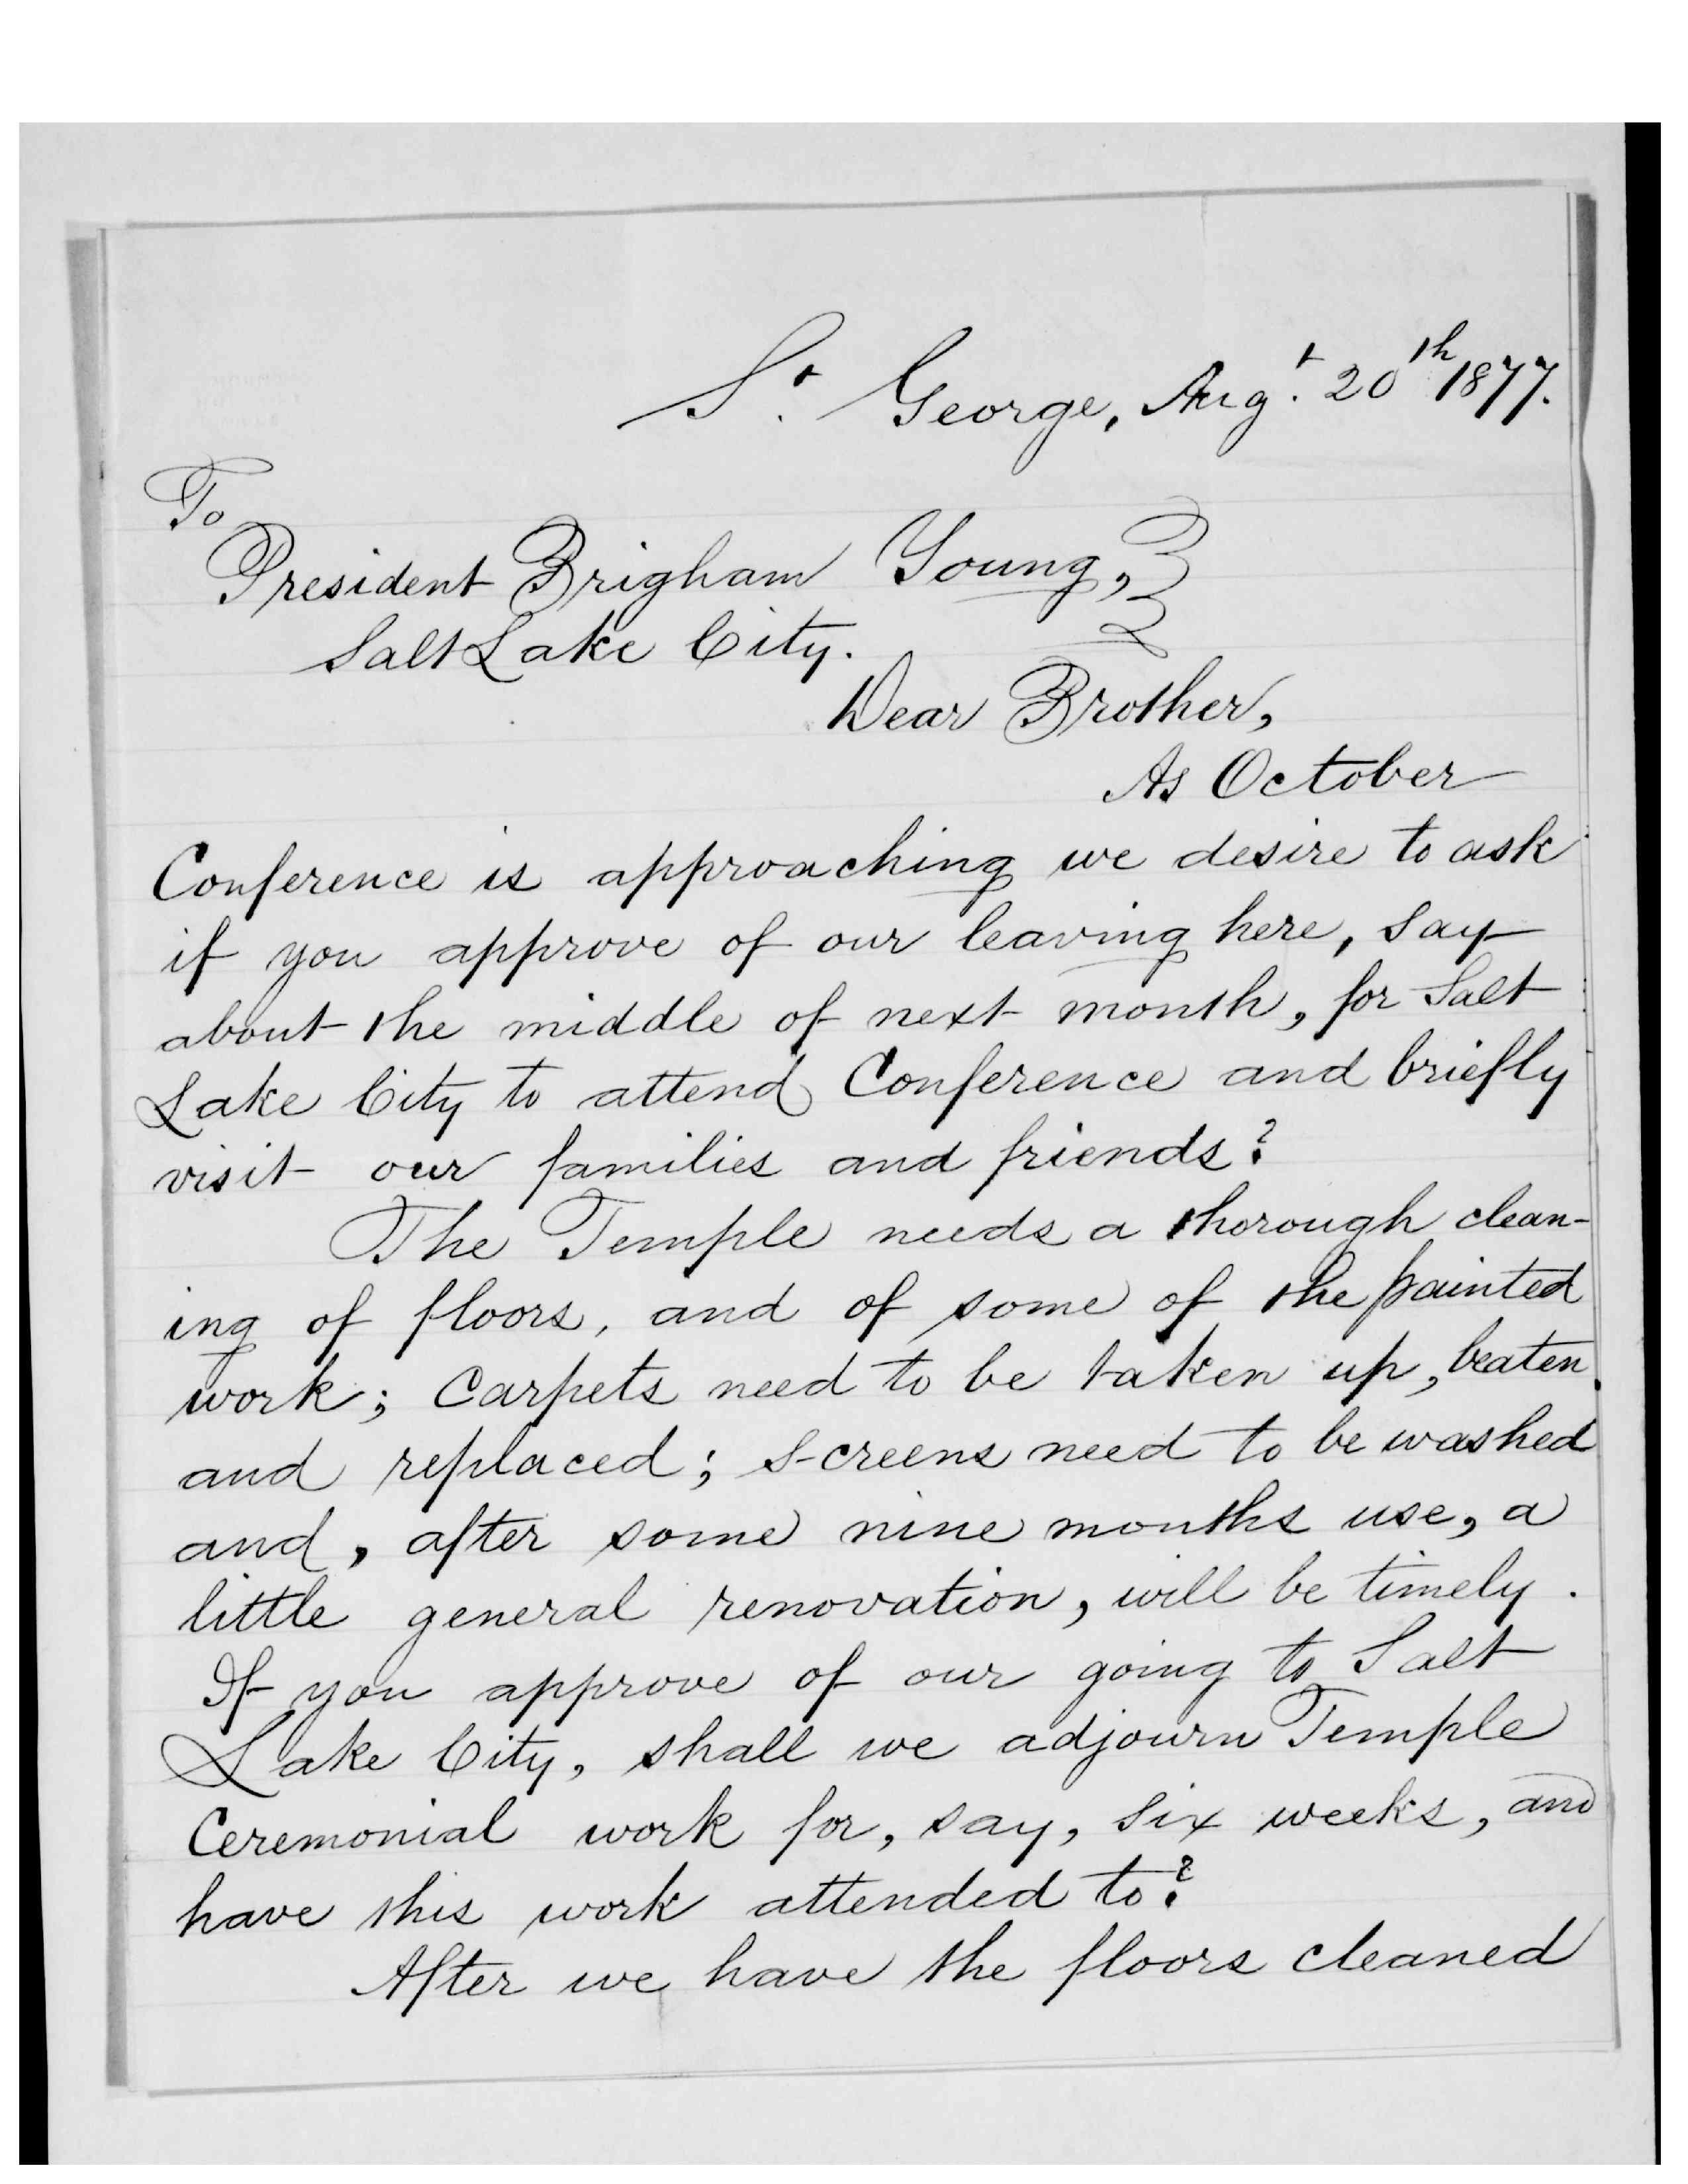 St. George, Augt. 20th 1877.
To
President Brigham Young,
Salt Lake City.
Dear Brother,
As October
Conference is approaching we desire to ask
if you approve of our leaving here, say
about the middle of next month, for Salt
Lake City to attend Conference and briefly
visit our families and friends?
The Temple needs a thorough clean-
ing of floors, and of some of the painted
work; Carpets need to be taken up, beaten
and replaced; Screens need to be washed
and, after some nine months use, a
little general renovation, will be timely.
If you approve of our going to Salt
Lake City, shall we adjourn Temple
Ceremonial work for, say, six weeks, and
have this work attended to?
After we have the floors cleaned